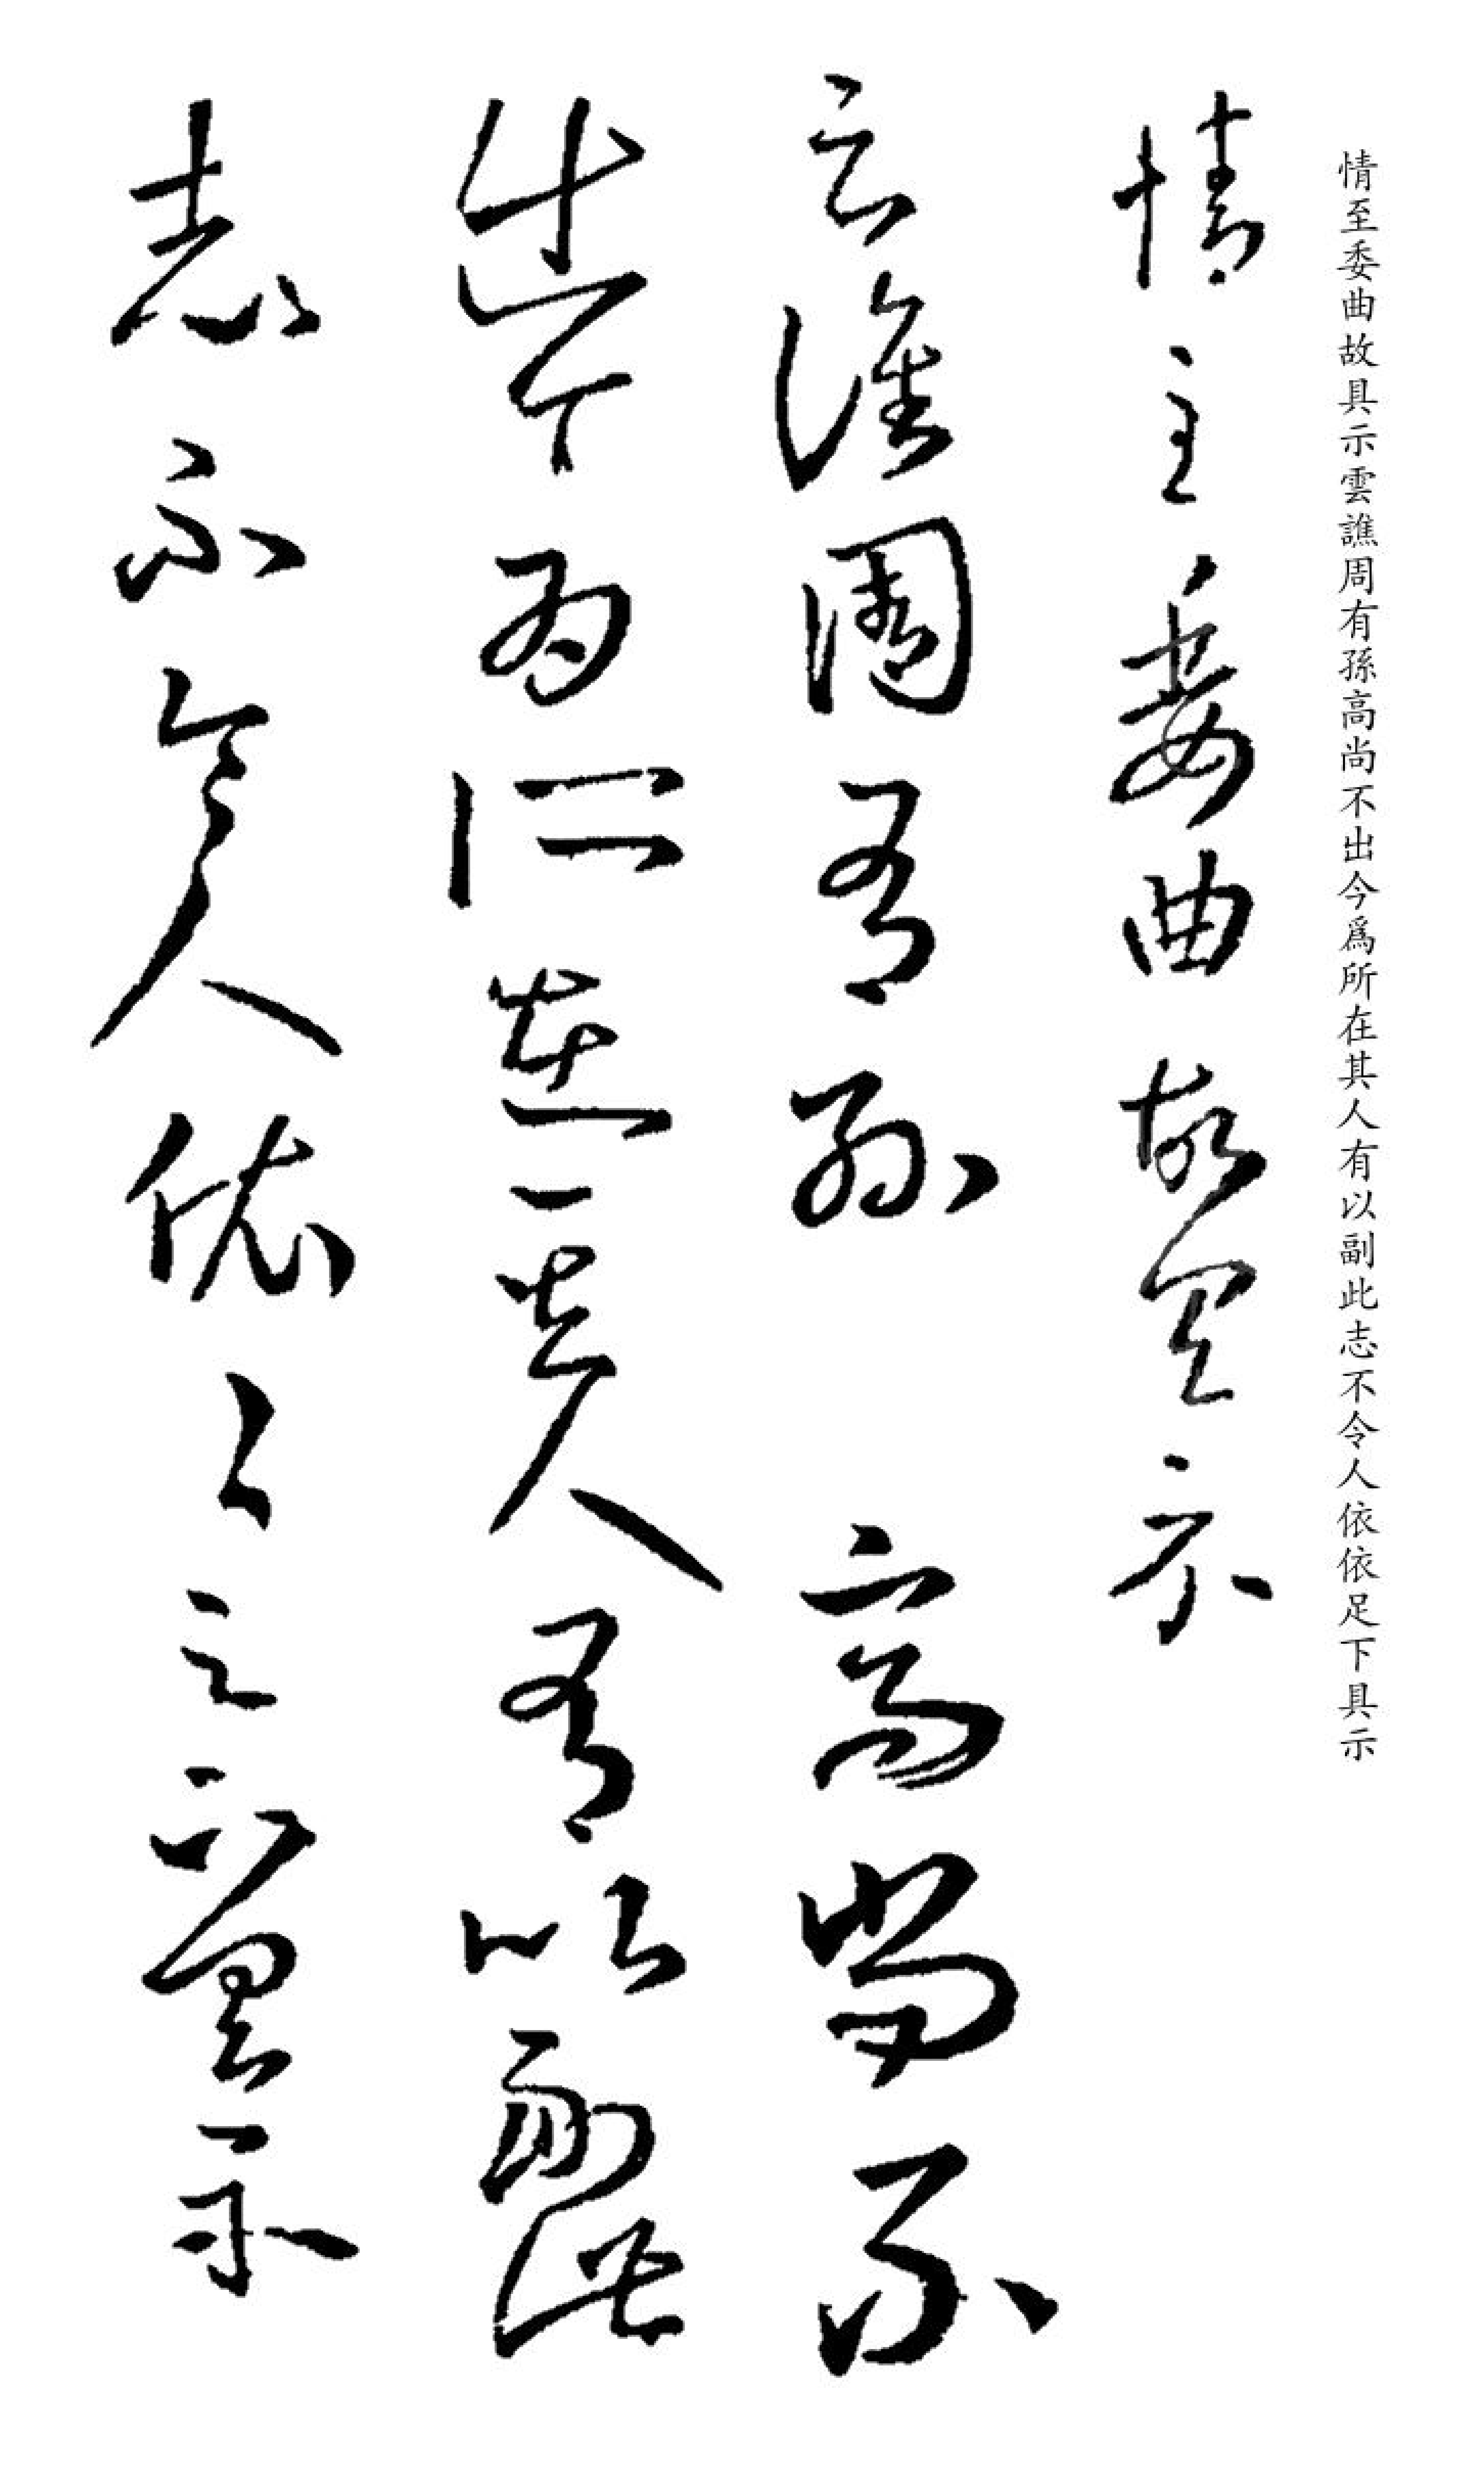 情至委曲故具示雲譙周有孫高尚不出今爲所在其人有以副此志不令人依依足下具示
情至委曲故具示
云譙周有孫高尚不
出今為所在其人有以副此
志不令人依々足下具示